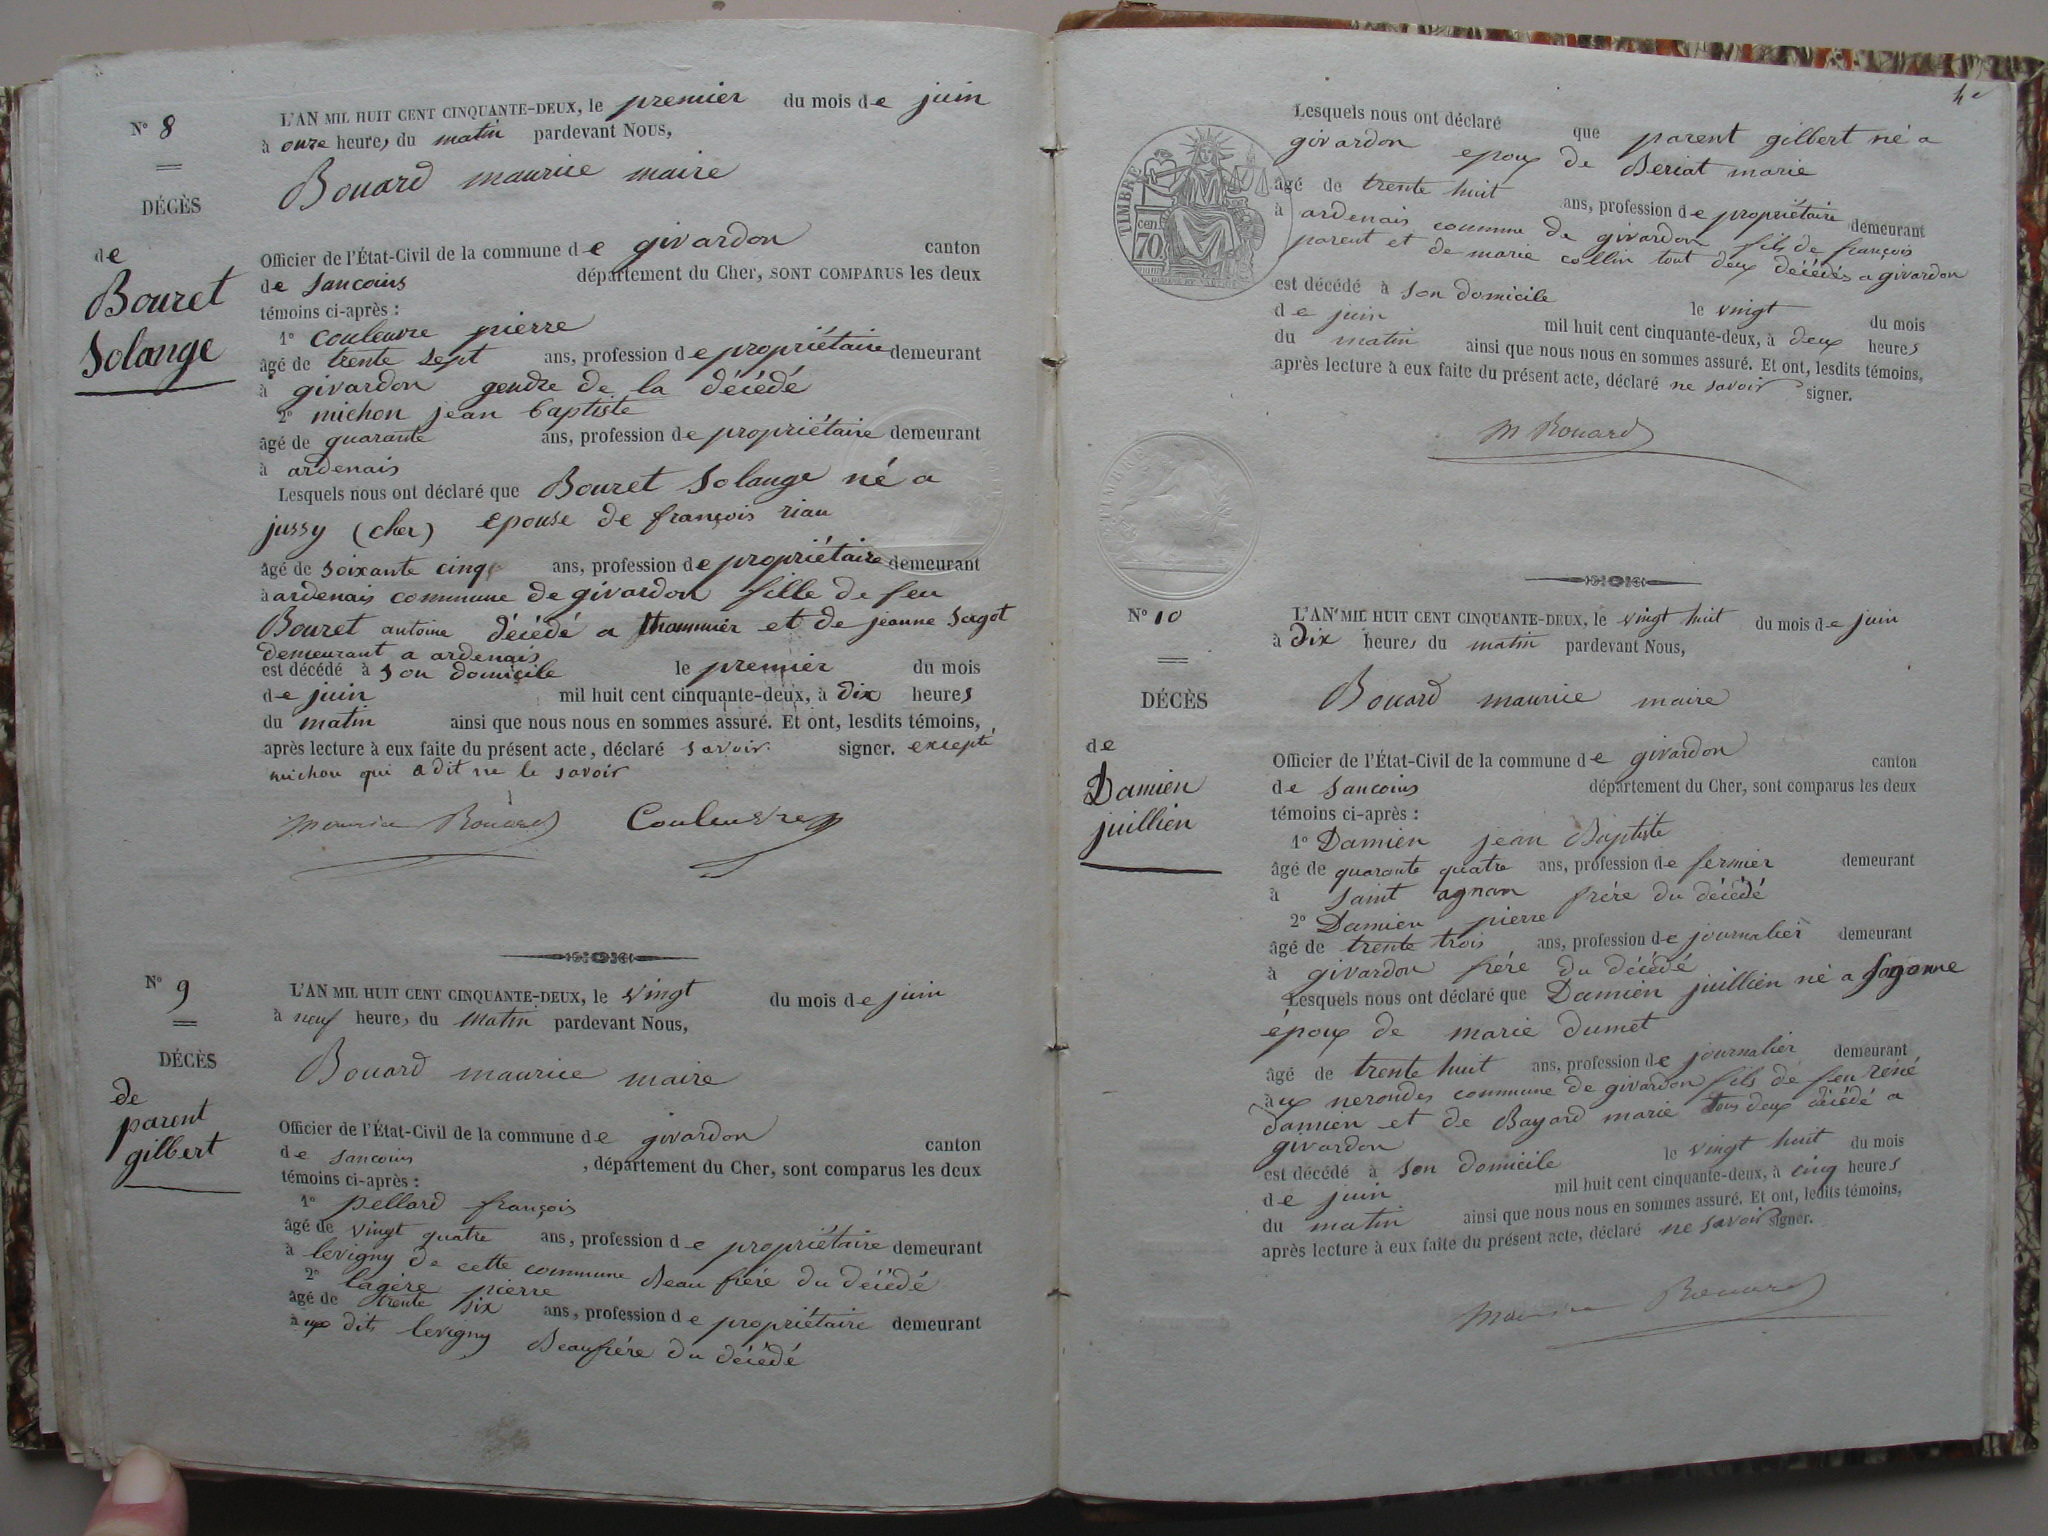 N° 8
DÉCÈS
de
Bouret
Solange
L'AN MIL HUIT CENT CINQUANTE-DEUX, le premier du mois de juin
à onze heures du matin pardevant NOUS,
Bouard maurice maire
Officier de l'État-Civil de la commune de givardon canton
de Sancoins département du Cher, SONT COMPARUS les deux
témoins ci-après :
1° couleuvre pierre
âgé de trente sept ans, profession de propriétaire demeurant
à givardon gendre de la décédé
2° michon jean baptiste
âgé de quarante ans, profession de propriétaire demeurant
à ardenais
Lesquels nous ont déclaré que Bouret Solange né a
jussy (cher) epouse de françois riau
âgé de soixante cinq ans, profession de propriétaire demeurant
à ardenais commune de givardon fille de feu
Bouret antoine décédé a thaumier et de jeanne sagot
demeurant a ardenais
est décédé à son domicile le premier du mois
de juin mil huit cent cinquante-deux, à dix heures
du matin ainsi que nous nous en sommes assuré. Et ont, lesdits témoins,
après lecture à eux faite du présent acte, déclaré savoir signer. excepté
michon qui a dit ne le savoir
Maurice Bouard Couleuvre
N° 9
DÉCÈS
de
parent
gilbert
L'AN MIL HUIT CENT CINQUANTE-DEUX, le vingt du mois de juin
à neuf heures du matin pardevant Nous,
Bouard maurice maire
Officier de l'État-Civil de la commune de givardon canton
de sancoins , département du Cher, sont comparus les deux
témoins ci-après :
1° pellard françois
âgé de vingt quatre ans, profession de propriétaire demeurant
à levigny de cette commune Beau frére du décédé
2° lagère pierre
âgé de trente six ans, profession de propriétaire demeurant
àux dits levigny Beaufrére du décédé
4e
TIMBRE
70 cen
Lesquels nous ont déclaré que parent gilbert né a
givardon epoux de Beriat marie
âgé de trente huit ans, profession de propriétaire demeurant
à ardenais commune de givardon fils de françois
parent et de marie collin tout deux décédés a givardon
est décédé à son domicile le vingt du mois
de juin mil huit cent cinquante-deux, à deux heures
du matin ainsi que nous nous en sommes assuré. Et ont, lesdits témoins,
après lecture à eux faite du présent acte, déclaré ne savoir signer.
M Bouard
TIMBRE
N° 10
DÉCÈS
de
Damien
juillien
L'AN MIL HUIT CENT CINQUANTE-DEUX, le vingt huit du mois de juin
à Dix heures du matin pardevant Nous,
Bouard maurice maire
Officier de l'État-Civil de la commune de givardon canton
de Sancoins département du Cher, sont comparus les deux
témoins ci-après :
1° Damien jean Baptiste
âgé de quarante quatre ans, profession de fermier demeurant
à saint agnan frére du décédé
2° Damien pierre
âgé de trente trois ans, profession de journalier demeurant
à givardon frére du décédé
Lesquels nous ont déclaré que Damien juillien né a sagonne
époux de marie dumet
âgé de trente huit ans, profession de journalier demeurant
àux nerondes commune de givardon fils de feu réné
damien et de Bayard marie tous deux décédé a
givardon
est décédé à son domicile le vingt huit du mois
de juin mil huit cent cinquante-deux, à cinq heures
du matin ainsi que nous nous en sommes assuré. Et ont, ledits témoins,
après lecture à eux faite du présent acte, déclaré ne savoir signer.
Maurice Bouard